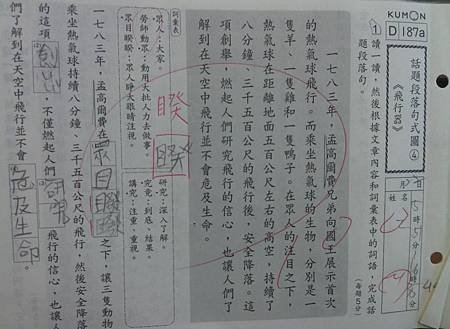 KUMON
D 187a
話題段落句式圖④
《飛行器》
月 日
姓名
時 分
時 分
1 讀一讀,然後根據文章內容和詞彙表中的詞語,完成話
題段落句。
(每題5分)
一七八三年,孟高爾費兄弟向國王展示首次
的熱氣球飛行。而乘坐熱氣球的生物,分別是一
隻羊、一隻雞和一隻鴨子。在眾人的注目之下,
熱氣球在距離地面五百公尺左右的高空,持續了
八分鐘、三千五百公尺的飛行後,安全降落。這
項創舉,燃起人們研究飛行的信心,也讓人們了
解到在天空中飛行並不會危及生命。
詞彙表
眾人:大家。
勞師動眾:動用大批人力去做事。
眾目睽睽:眾人睜大眼睛注視。
研究:深入了解。
究竟:到底、結果。
講究:注重、重視。
睽
睽
一七八三年,孟高爾費在眾目睽睽之下,讓三隻動物
乘坐熱氣球持續八分鐘、三千五百公尺的飛行,然後安全降落
的這項創舉,不僅燃起人們研究飛行的信心,也讓人
們了解到在天空中飛行並不會危及生命。